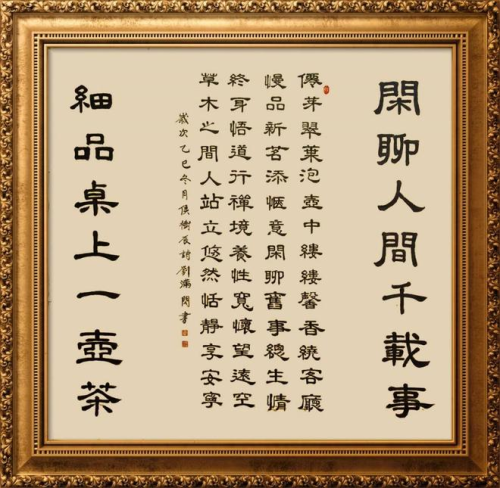 閑聊人間千載事
僊芽翠葉泡壺中縷縷馨香繞客廳
慢品新茗添愜意閑聊舊事總生情
終身悟道行禪境養性寬懷望遠空
草木之間人站立悠然恬靜享安寧
歲次乙巳冬月侯樹辰詩劉滿閣書
細品桌上一壺茶